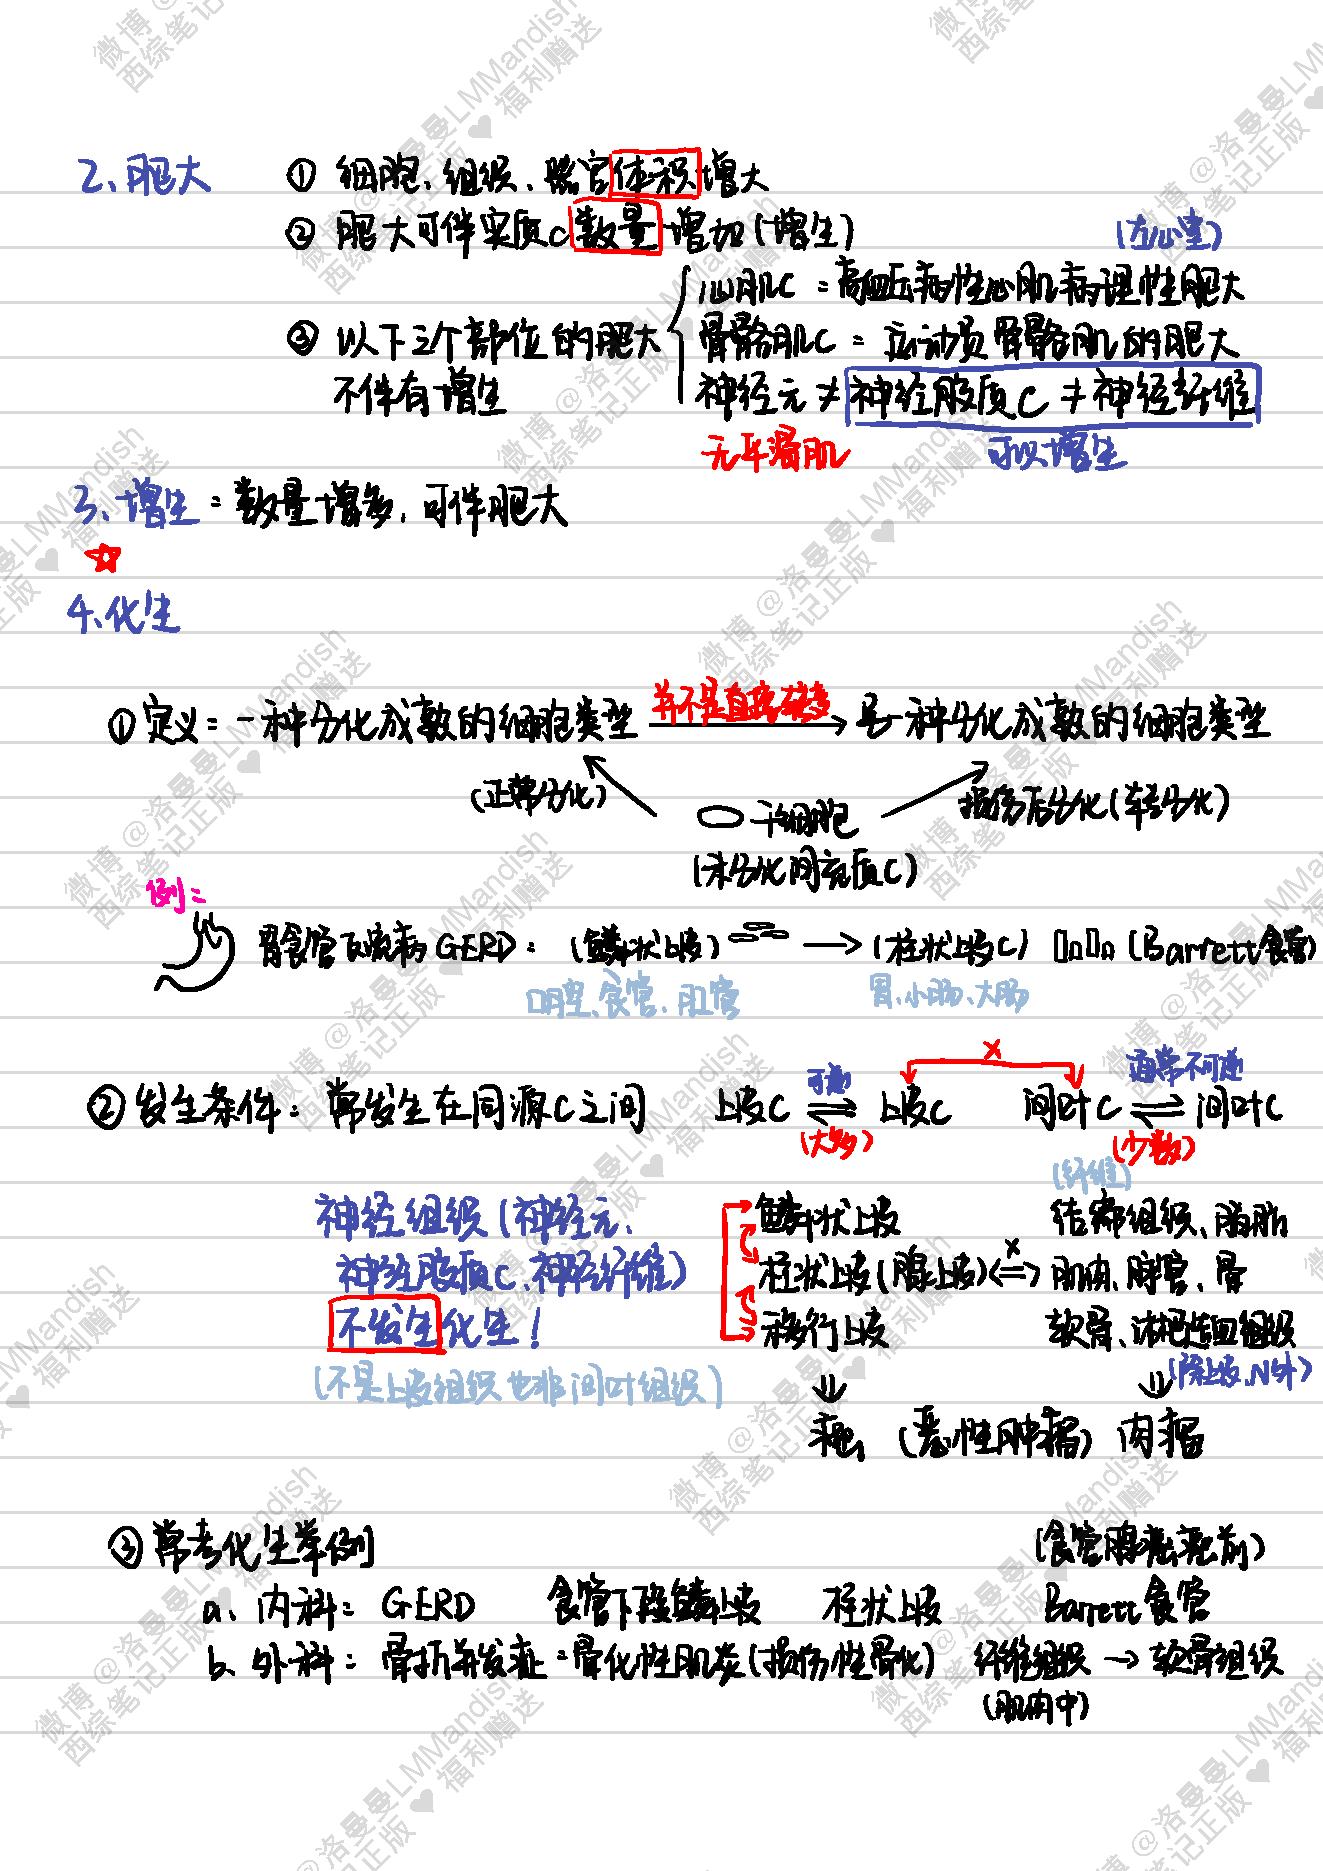 2、肥大 ① 细胞、组织、器官体积增大
② 肥大可伴实质C数量增加(增生)
(左心室)
心肌C：高血压病性心肌病理性肥大
③ 以下三个部位的肥大 骨骼肌C：运动员骨骼肌的肥大
不伴有增生 神经元≠神经胶质C≠神经纤维
无平滑肌 可以增生
3、增生：数量增多,可伴肥大
☆
4、化生
并不是直接转变
①定义：一种分化成熟的细胞类型 → 另一种分化成熟的细胞类型
(正常分化) 干细胞 损伤后分化(转分化)
(未分化间充质C)
例：
胃食管反流病GERD：(鳞状上皮) → (柱状上皮C) (Barrett食管)
口腔、食管、肛管 胃、小肠、大肠
× 
可逆 通常不可逆
②发生条件：常发生在同源C之间 上皮C ⇌ 上皮C 间叶C ⇌ 间叶C
(大多) (少数)
(纤维)
神经组织(神经元、 鳞状上皮 结缔组织、脂肪
神经胶质C、神经纤维) 柱状上皮(腺上皮) ×⇔ 肌肉、脉管、骨
不发生化生! 移行上皮 软骨、淋巴造血组织
(不是上皮组织也非间叶组织) ⇓ ⇓ (除上皮、N外)
癌 (恶性肿瘤) 肉瘤
③常考化生举例 (食管腺癌癌前)
a、内科：GERD 食管下段鳞上皮 柱状上皮 Barrett食管
b、外科：骨折并发症：骨化性肌炎(损伤性骨化) 纤维组织 → 软骨组织
(肌肉中)
微博@洛曼曼LMMandish
西综笔记正版♥福利赠送